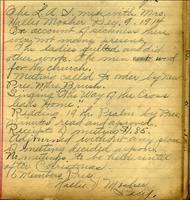 The L. A. S. met with Mrs.
Hallie Mosher Dec. 9, 1914
On account of sickness there
was not many present.
The ladies quilted and did
other work. The men cut wood
for the church.
Meeting called to order by new
Pres. Mrs. Branch.
Singing "The Way of the Cross
Leads Home"
Reading 19 th. Psalm by Pres.
Minutes read and approved.
Receipts of meeting $1.85.
Adjourned until time and place
of meeting decided upon.
No meetings to be held until
after Christmas.
16 Members Pres.
Hallie J. Mosher
Sec'y.